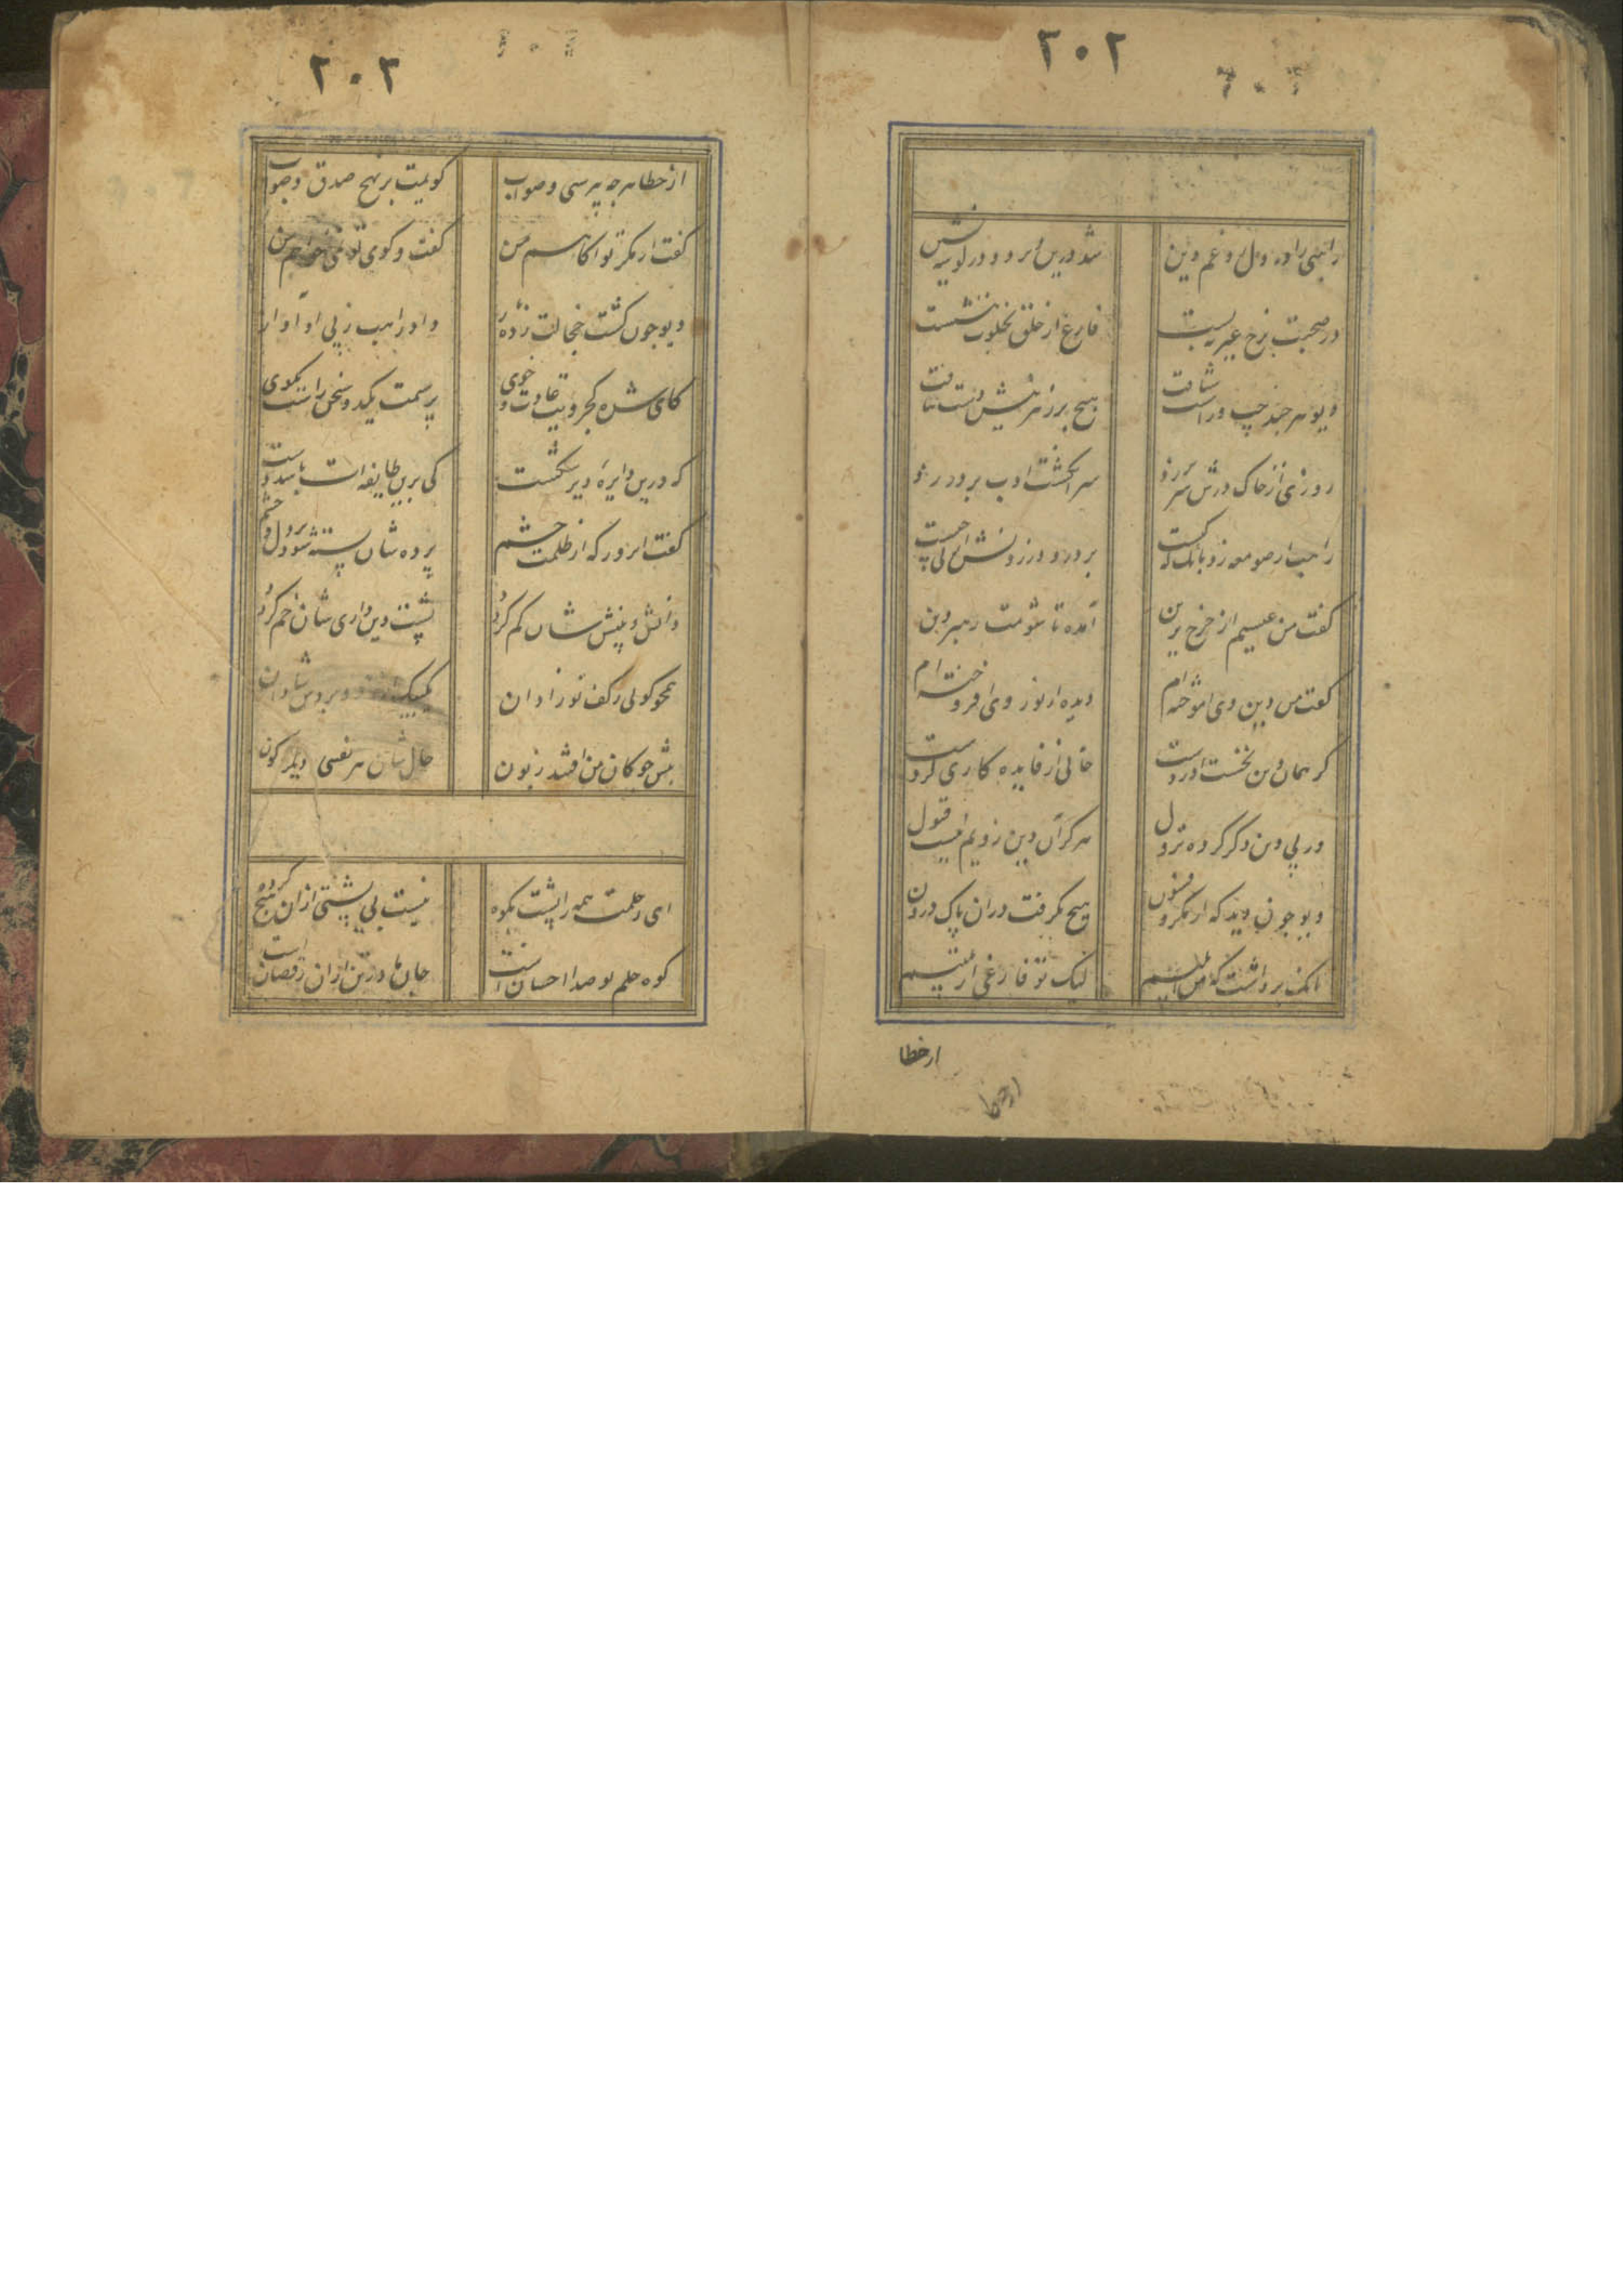 ۲۰۲
راهبی را ره دل زد غم دین شد درین دیر و در لوسه نشین
در صحبت برخ غیر ببست فارغ از خلق بخلوت بنشست
دیو هر چند چپ و راست شتافت هیچ بر رهزنیش دست نیافت
روزی از خاک درش سر بر زد سر انگشت ادب بر در زد
راهب از صومعه زد بانک که کیست بر در و در زدنش از پی چیست
گفت من عیسیم از چرخ برین آمده تا شومت رهبر دین
گفت من دین وی آموخته ام دیده از نور وی افروخته ام
گر همان دین نخست آوردست خالی از فایده کاری کردست
ور پی دین دگر کرده نزول هرگز آن دین ز ویم نیست قبول
دیو چون دید که از مکر و فسون هیچ نگرفت در آن پاک درون
بانک برداشت که من ابلیسم لیک تو فارغی از تلبیسم
ازخطا
ازخطا
۲۰۳
از خطا هر چه بپرسی و صواب گویمت بر نهج صدق و صواب
گفت از مکر تو آکاهم من گفت و گوی تو نمی خواهم من
دیو چون گشت خجالت زده باز داد راهب ز پی او آواز
کای شده کجرویت عادت و خوی پرسمت یکدو سخن راست بگوی
که درین دایره دیر شکست کی برین طایفه ات باشد دست
گفت آنروز که از ظلمت خشم پرده شان بسته شود بر دل و چشم
دانش و بینش شان کم گردد پشت دین داری شان خم گردد
همچو گویی ز کف نوزادان
پیش چوکان من افتند زبون حال شان هر نفسی دیگرگون
ای ز حلمت همه را پشت بکوه نیست بی پشتی ازان هیچ گروه
کوه حلم تو صدا احسانست جانها در تن ازان رقصانست